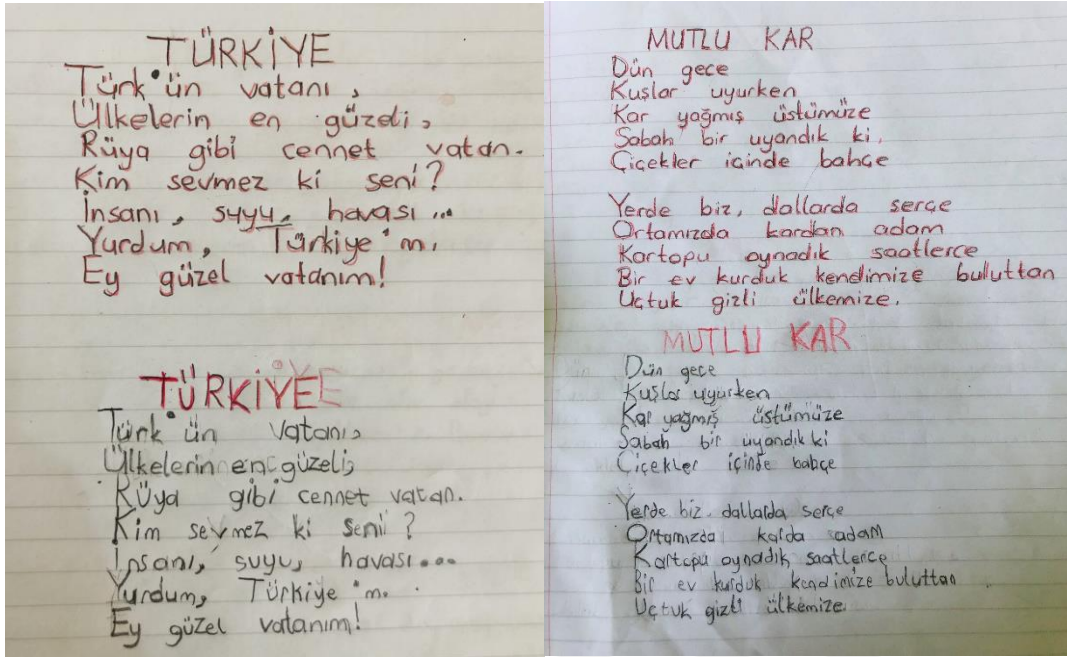 TÜRKİYE
Türk'ün vatanı,
Ülkelerin en güzeli,
Rüya gibi cennet vatan.
Kim sevmez ki seni?
İnsanı, suyu, havası...
Yurdum, Türkiye'm.
Ey güzel vatanım!
TÜRKİYEE
Türk'ün vatanı,
Ülkelerin en güzeli,
Rüya gibi cennet vatan.
Kim sevmez ki senii?
İnsanı, suyu, havası....
Yurdum, Türkiye'm.
Ey güzel vatanım!
MUTLU KAR
Dün gece
Kuşlar uyurken
Kar yağmış üstümüze
Sabah bir uyandık ki.
Çiçekler içinde bahçe
Yerde biz, dallarda serçe
Ortamızda kardan adam
Kartopu oynadık saatlerce
Bir ev kurduk kendimize buluttan
Uçtuk gizli ülkemize.
MUTLU KAR
Dün gece
Kuşlar uyurken
Kar yağmış üstümüze
Sabah bir uyandık ki
Çiçekler içinde bahçe
Yerde biz. dallarda serçe
Ortamızda karda adam
Kartopu oynadık saatlerce
Bir ev kurduk kendimize buluttan
Uçtuk gizli ülkemize.